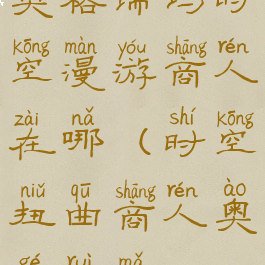 奥格瑞玛时
kōng màn yóu shāng rén
空漫游商人
zài nǎ shí kōng
在哪(时空
niǔ qū shāng rén ào
扭曲商人奥
gé ruì mǎ